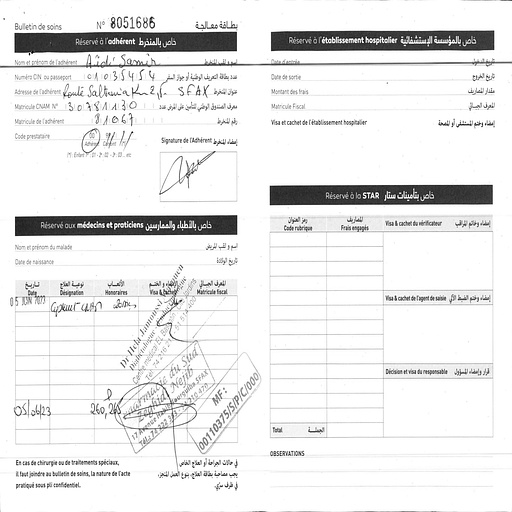 Bulletin de soins N° 8051686 بطاقة معالجة
Réservé à l'adhérent خاص بالمنخرط
Nom et prénom de l'adhérent Aïdi Samir اسم و لقب المنخرط
Numéro CIN ou passeport 01035454 عدد بطاقة التعريف الوطنية أو جواز السفر
Adresse de l'adhérent Route Saltania Km 2 SFAX عنوان المنخرط
Matricule CNAM N° 30781130 معرف الصندوق الوطني للتأمين على المرض عدد
Matricule de l'adhérent 81067 رقم المنخرط
Code prestataire 00
Adhérent Conjoint
Signature de l'Adhérent إمضاء المنخرط
Réservé aux médecins et praticiens خاص بالأطباء والممارسين
Nom et prénom du malade اسم و لقب المريض
Date de naissance تاريخ الولادة
تاريخ نوعية العلاج الأتعاب الإمضاء و الختم المعرف الجبائي
Date Désignation Honoraires Visa & Cachet Matricule fiscal
05 JUIN 2023
Dr Hela
05/06/23 260,265
Pharmacie du Sud
Zeghidi Nejib
17 Avenue Habib Bourguiba SFAX
MF:
0011037S/S/P/C/000
En cas de chirurgie ou de traitements spéciaux,
il faut joindre au bulletin de soins, la nature de l'acte
pratiqué sous pli confidentiel.
في حالات الجراحة أو العلاج الخاص
يجب مصاحبة بطاقة العلاج، بنوع العمل المنجز،
في ظرف سري.
Réservé à l'établissement hospitalier خاص بالمؤسسة الإستشفائية
Date d'entrée تاريخ الدخول
Date de sortie تاريخ الخروج
Montant des frais مقدار المصاريف
Matricule Fiscal المعرف الجبائي
Visa et cachet de l'établissement hospitalier إمضاء وختم المستشفى أو المصحة
Réservé à la STAR خاص بتأمينات ستار
رمز العنوان المصاريف
Code rubrique Frais engagés
Visa & cachet du vérificateur إمضاء وخاتم المراقب
Visa & cachet de l'agent de saisie إمضاء وختم الضبط الآلي
Décision et visa du responsable قرار وإمضاء المسؤول
Total الجملة
OBSERVATIONS